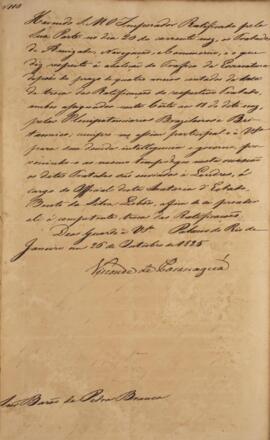 Havendo S. M. O Imperador Ratificado pela
Sua Parte no dia 20 do corrente mez, os Tratados
de Amizade, Navegação, e Commercio, e o que
diz respeito á abolição do Trafico da Escravatura
depois do prazo de quatro annos contados do dia
da troca das Ratificações do respectivo Tratado,
ambos assignados nesta Côrte em 18 do dito mez,
pelos Plenipotenciarios Brazileiros e Bri-
tannico, cumpre-me assim participal-o a VS.ª
para sua devida intelligencia e governo pre-
venindo-o ao mesmo tempo de que nesta occasião
os ditos Tratados são enviados a Londres, a
cargo do Official desta Secretaria d'Estado,
Bento da Silva Lisboa, afim de se proceder
ali á competente troca das Ratificações.
Deos Guarde a VS.ª Palacio do Rio de
Janeiro em 26 de Outubro de 1825
Visconde de Paranaguá
Snr. Barão da Pedra Branca